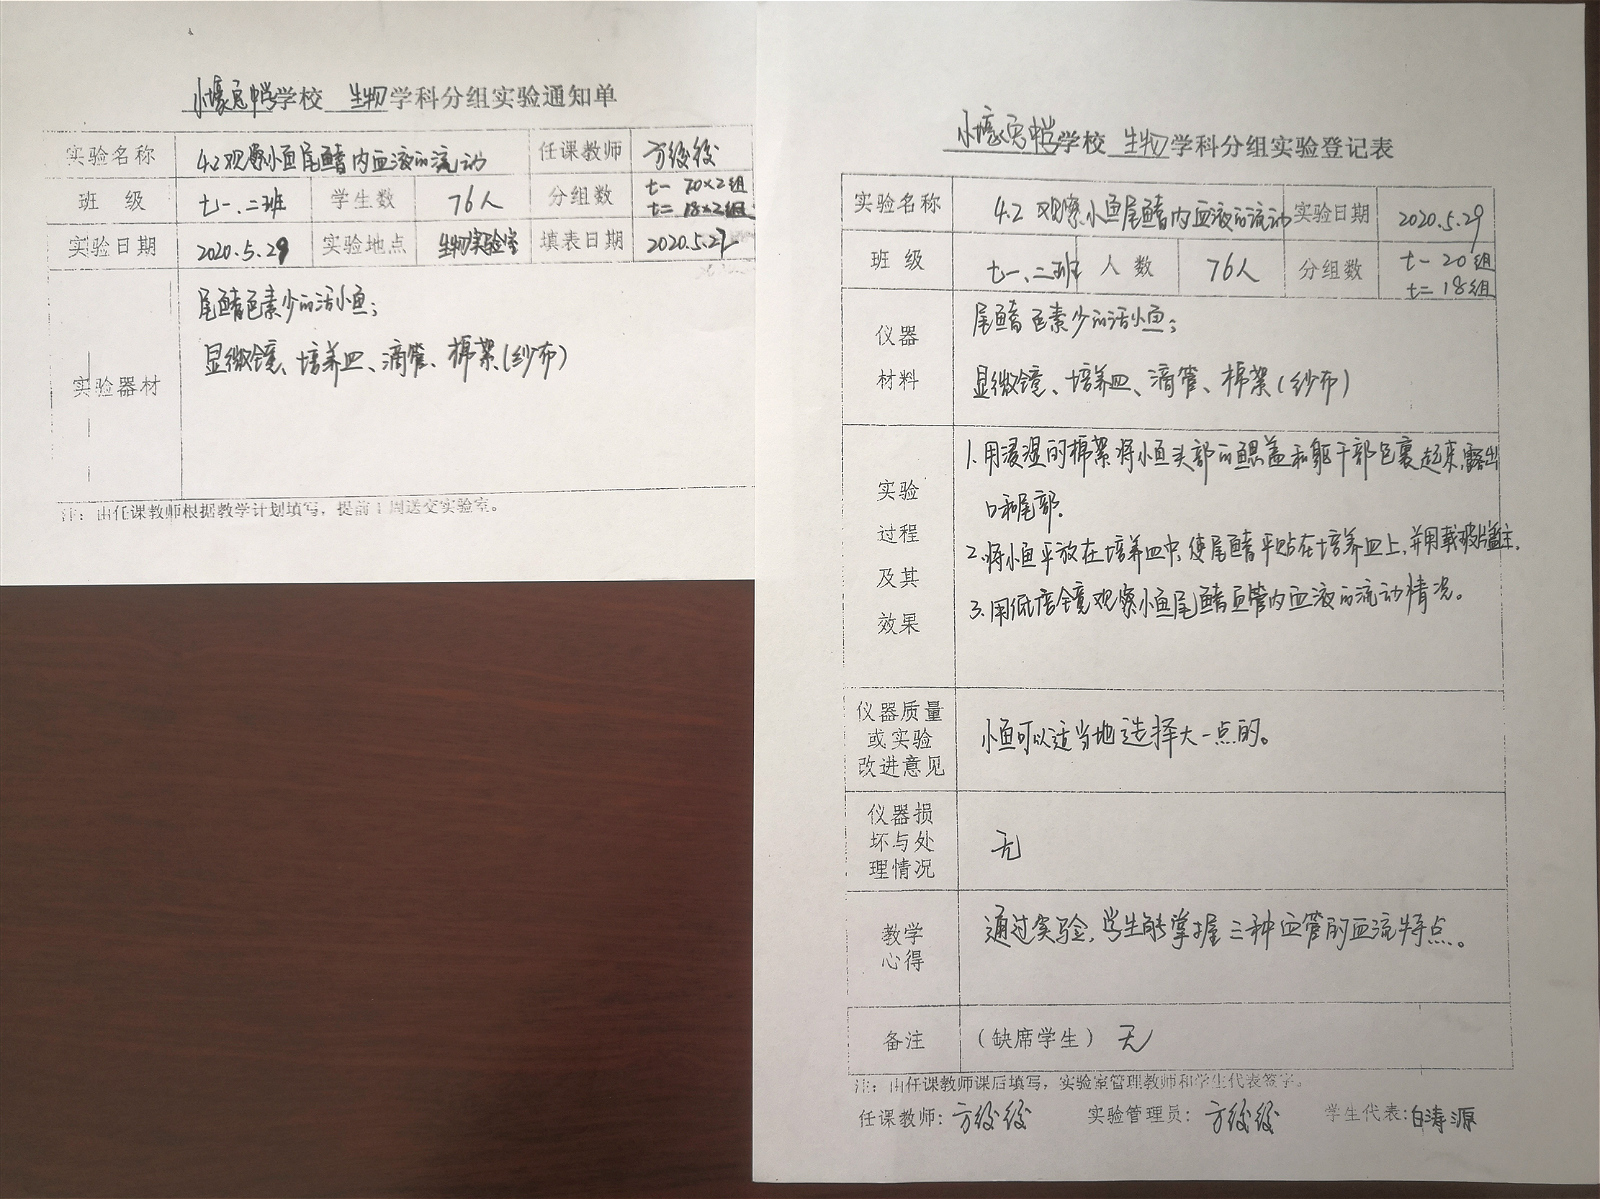 小壕兔中学学校 生物学科分组实验通知单
实验名称 4.2观察小鱼尾鳍内血液的流动 任课教师 方姣姣
班 级 七一、二班 学生数 76人 分组数 七一 20×2组
七二 18×2组
实验日期 2020.5.29 实验地点 生物实验室 填表日期 2020.5.22
实验器材
尾鳍色素少的活小鱼;
显微镜、培养皿、滴管、棉絮(纱布)
注:由任课教师根据教学计划填写,提前1周送交实验室。
小壕兔中学学校 生物学科分组实验登记表
实验名称 4.2 观察小鱼尾鳍内血液的流动 实验日期 2020.5.29
班 级 七一、二班 人 数 76人 分组数 七一 20组
七二 18组
仪器
材料
尾鳍色素少的活小鱼;
显微镜、培养皿、滴管、棉絮(纱布)
实验
过程
及其
效果
1.用浸湿的棉絮将小鱼头部的鳃盖和躯干部包裹起来,露出
口和尾部.
2.将小鱼平放在培养皿中,使尾鳍平贴在培养皿上,并用载玻片盖住.
3.用低倍镜观察小鱼尾鳍血管内血液的流动情况。
仪器质量
或实验
改进意见
小鱼可以适当地选择大一点的。
仪器损
坏与处
理情况
无
教学
心得
通过实验,学生能掌握三种血管的血流特点。
备注 (缺席学生) 无
注:由任课教师课后填写,实验室管理教师和学生代表签字。
任课教师:方姣姣 实验管理员:方姣姣 学生代表:白涛源